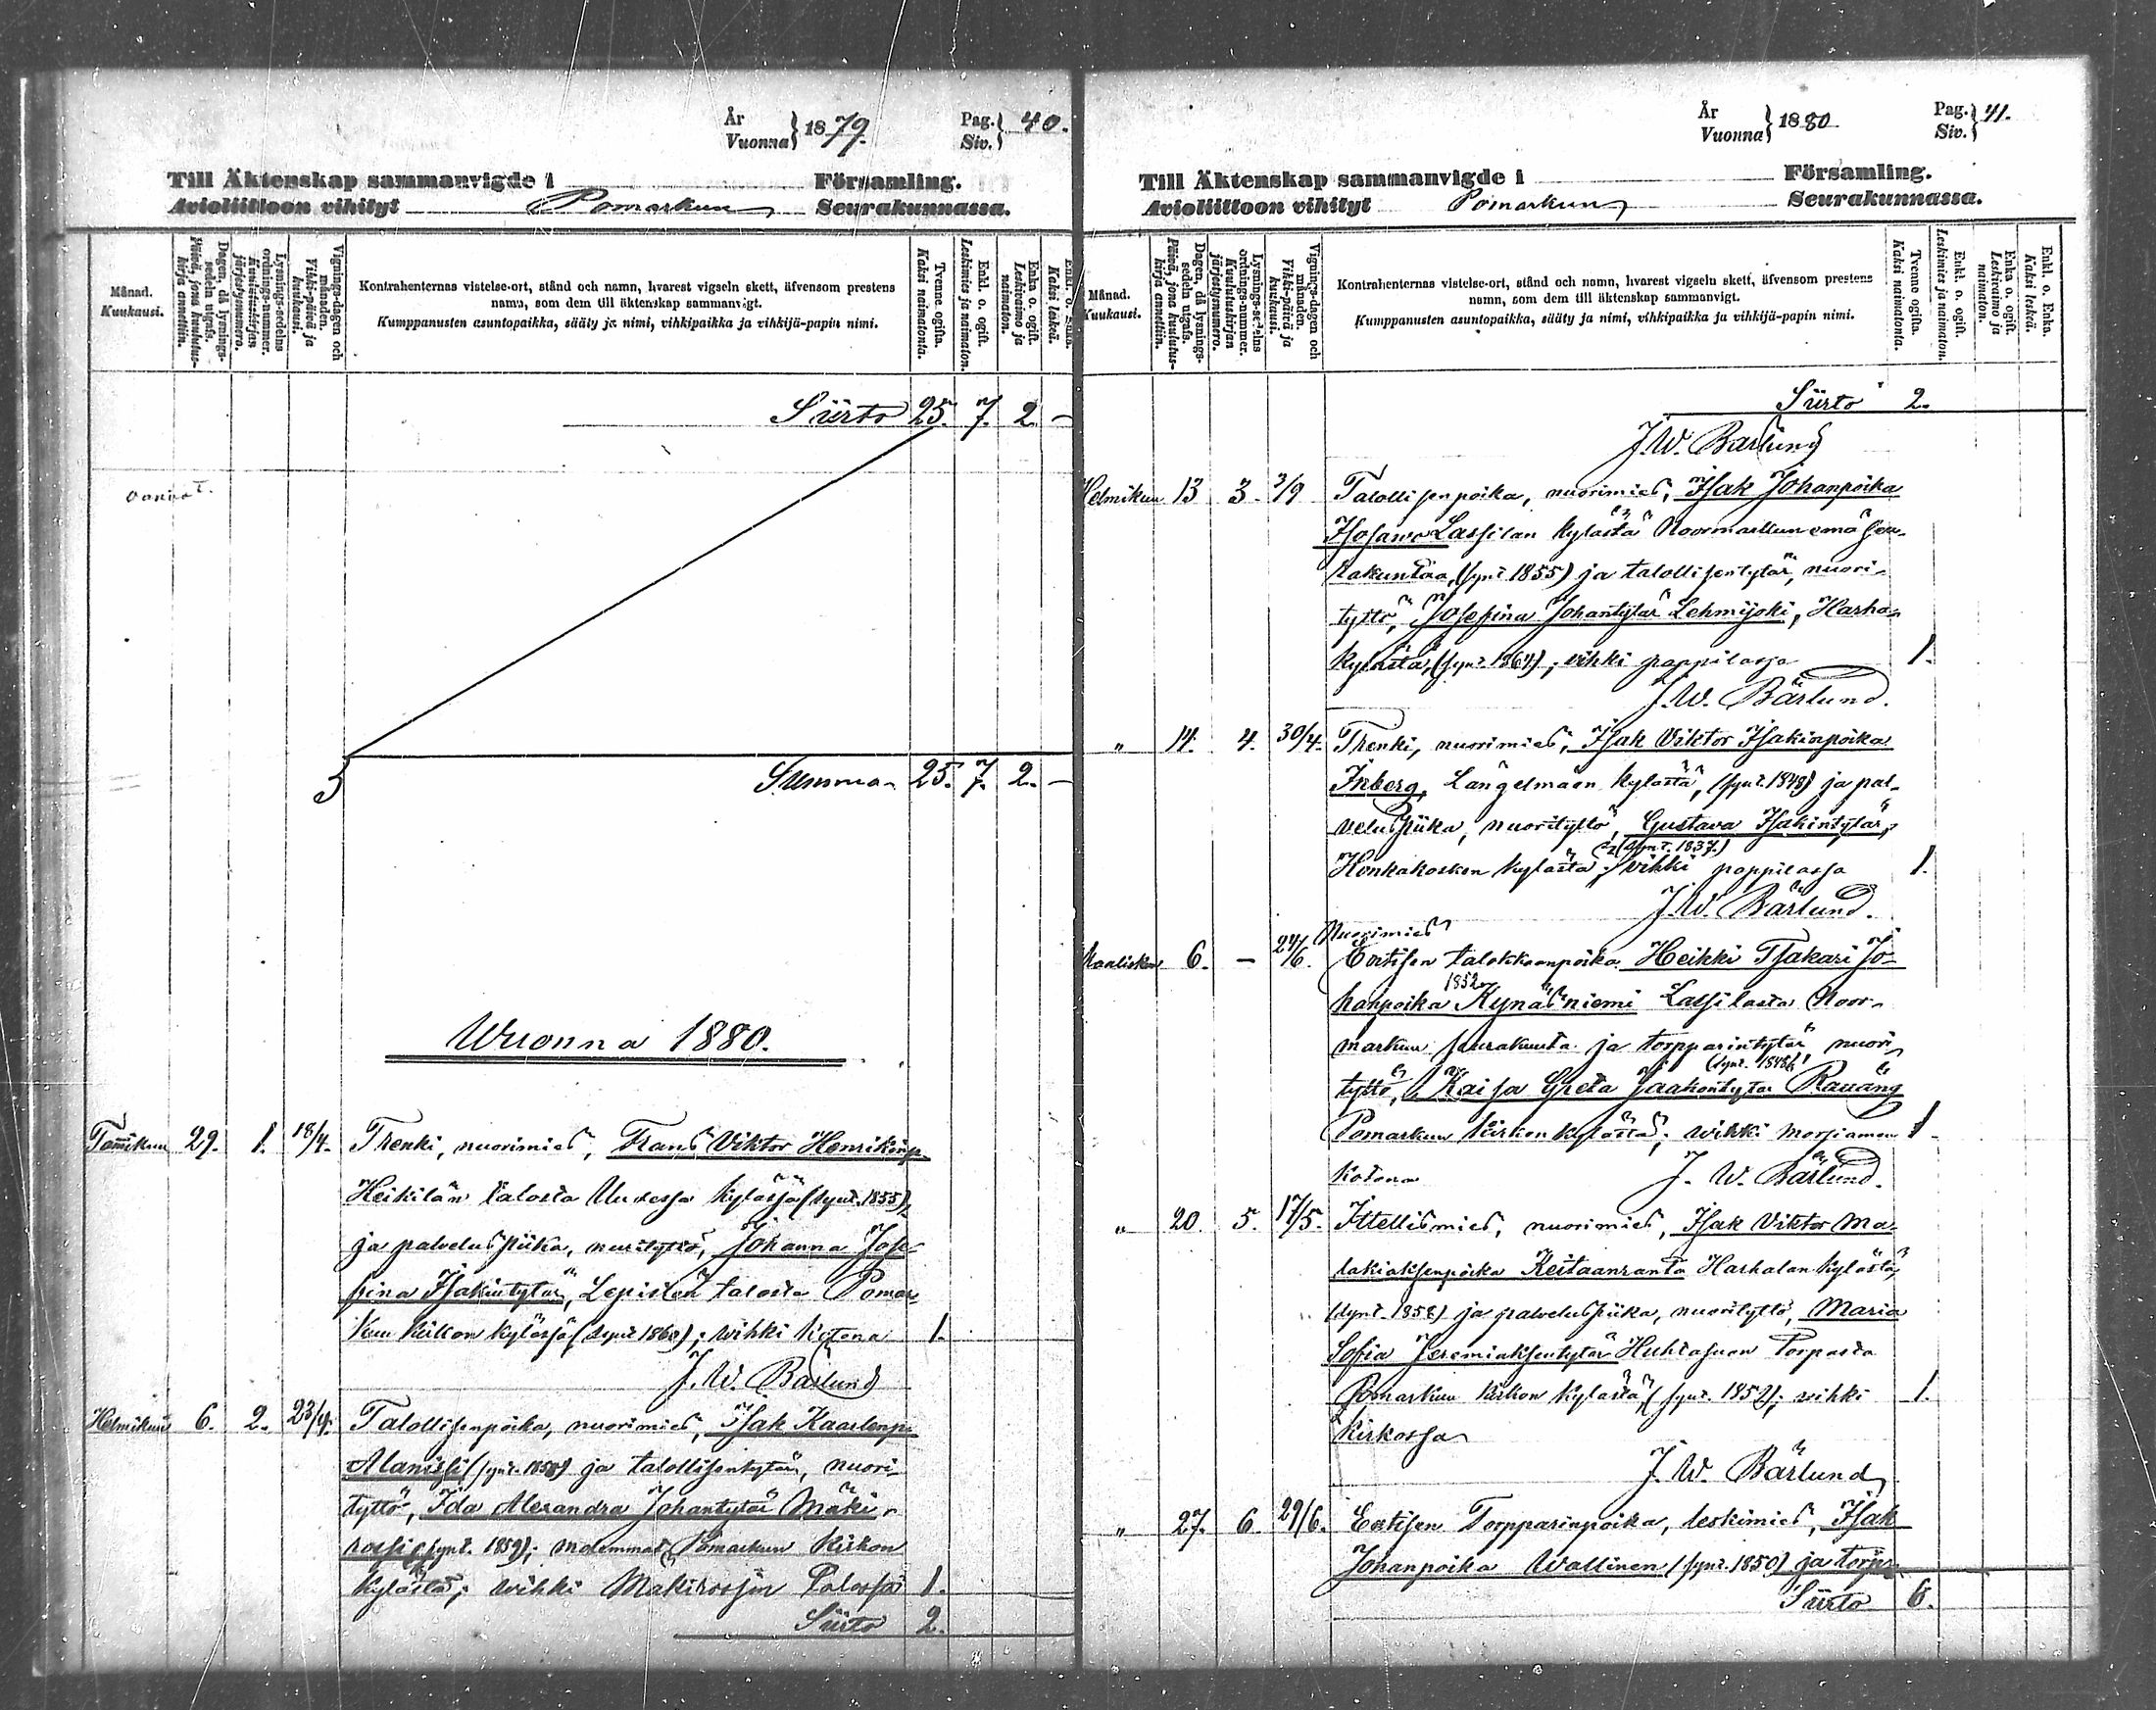 År
Vuonna } 1879.
Pag.
Siv. } 40.
Till Äktenskap sammanvigde i Församling.
Avioliittoon vihityt Pomarkun Seurakunnassa.
Månad.
Kuukausi.
Dagen, då lysnings-
sedeln utgafs.
Päivä, jona kuulutus-
kirja annettiin.
Lysnings-sedelns
ordnings-nummer.
Kuulutuskirjan
järjestysnumero.
Vignings-dagen och
månaden.
Vihki-päivä ja
kuukausi.
Kontrahenternas vistelse-ort, stånd och namn, hvarest vigseln skett, äfvensom prestens
namn, som dem till äktenskap sammanvigt.
Kumppanusten asuntopaikka, sääty ja nimi, vihkipaikka ja vihkijä-papin nimi.
Tvenne ogifta.
Kaksi naimatonta.
Enkl. o. ogift.
Leskimies ja naimaton.
Enka o. ogift.
Leskivaimo ja
naimaton.
Enkl. o. Enka.
Kaksi leskeä.
Siirto 25. 7. 2. –
Summa 25. 7. 2. –
Wuonna 1880.
Tammikuu 29. 1. 18/4. Trenki, nuorimies, Frans Viktor Henrikinp.
Heikilän talosta Uudessa kylässä (synt. 1855),
ja palveluspiika, nuorityttö, Johanna Jose-
fina Isakintytär, Lepistön talosta Pomar-
kun kirkon kylässä (synt. ); vihki kotona 1.
J. W. Bärlund
Helmikuu 6. 2. 23/4. Talollisenpoika, nuorimies, Isak Kaarlenp.
Alanissi (synt. ) ja talollisentytär, nuori-
tyttö, Ida Alexandra Johantytär Mäki-
rossi (synt. 1859); molemmat Pomarkun kirkon
kylästä; vihki Mäkirossin talossa 1.
Siirto 2.
År
Vuonna } 1880
Pag.
Siv. } 41.
Till Äktenskap sammanvigde i Församling.
Avioliittoon vihityt Pomarkun Seurakunnassa.
Månad.
Kuukausi.
Dagen, då lysnings-
sedeln utgafs.
Päivä, jona kuulutus-
kirja annettiin.
Lysnings-sedelns
ordnings-nummer.
Kuulutuskirjan
järjestysnumero.
Vignings-dagen och
månaden.
Vihki-päivä ja
kuukausi.
Kontrahenternas vistelse-ort, stånd och namn, hvarest vigseln skett, äfvensom prestens
namn, som dem till äktenskap sammanvigt.
Kumppanusten asuntopaikka, sääty ja nimi, vihkipaikka ja vihkijä-papin nimi.
Tvenne ogifta.
Kaksi naimatonta.
Enkl. o. ogift.
Leskimies ja naimaton.
Enka o. ogift.
Leskivaimo ja
naimaton.
Enkl. o. Enka.
Kaksi leskeä.
Siirto 2.
J. W. Bärlund
Helmikuu 13 3. 3/9 Talollisenpoika, nuorimies, Isak Johanpoika
Isosawo Lassilan kylästä Noormarkun emäseu-
rakuntaa, (synt. 1855) ja talollisentytär, nuori-
tyttö, Josefina Johantytär Lehmijoki, Harha-
kylästä, (synt. 1864); vihki pappilassa 1.
J. W. Bärlund.
" 14. 4. 30/4. Trenki, nuorimies, Isak Viktor Isakinpoika
Inberg, Längelmään kylästä, (synt. 1848) ja pal-
veluspiika, nuorityttö, Gustava Isakintytär,
(synt. 1837.)
Honkakosken kylästä; vihki pappilassa 1.
J. W. Bärlund.
Nuorimies
Maaliskuu 6. – 24/6. Entisen talokkaanpoika Heikki Isakari Jo-
1852
hanpoika Kynäsniemi Lassilasta Noor-
markun seurakunta ja torpparintytär nuori-
(synt. 1848)
tyttö, Kaisa Greta Jaakontytär Rauäng
Pomarkun kirkon kylästä; vihki morsiamen 1.
kotona J. W. Bärlund.
" 20. 5. 17/5. Ittellismies, nuorimies, Isak Viktor Ma-
lakiaksenpoika Keitaanranta Harhalan kylästä,
(synt. 1858) ja palveluspiika, nuorityttö, Maria
Sofia Jeremiaksentytär Huhtasuon Torpasta
Pomarkun kirkon kylästä, (synt. 1852); vihki 1.
kirkossa
J. W. Bärlund
" 27. 6. 29/6. Entisen Torpparinpoika, leskimies, Isak
Johanpoika Wallinen (synt. 1850) ja torp-
Siirto 6.